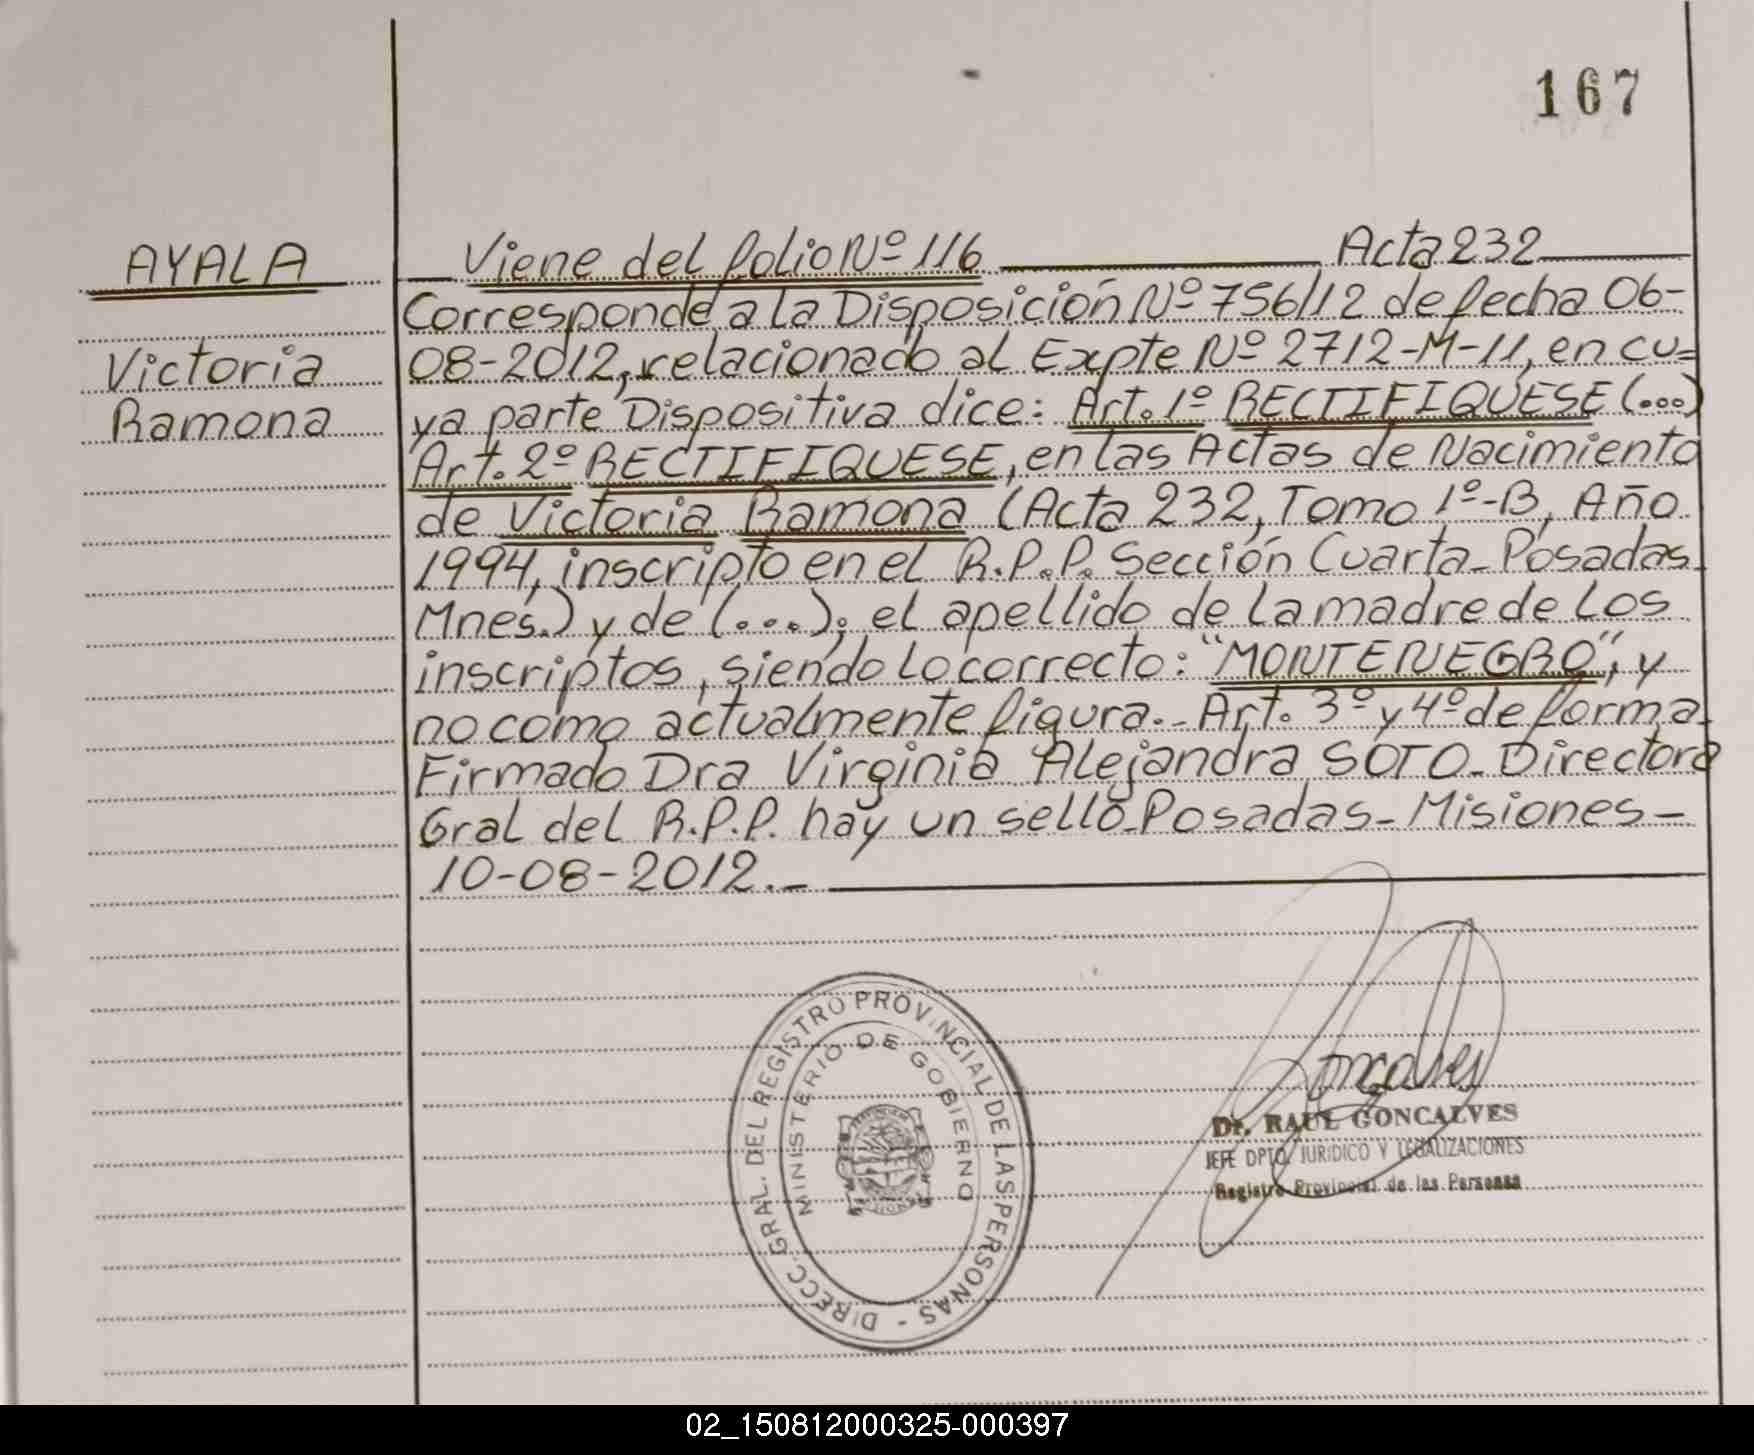 167
AYALA
Victoria
Ramona
Viene del folio Nº 116 Acta 232
Corresponde a la Disposición Nº 756/12 de fecha 06-
08-2012, relacionado al Expte Nº 2712-M-11, en cu=
ya parte Dispositiva dice: Art. 1º RECTIFIQUESE (...)
Art. 2º RECTIFIQUESE, en las Actas de Nacimiento
de Victoria Ramona (Acta 232, Tomo 1º-B, Año
1994, inscripto en el R.P.P. Sección Cuarta-Posadas-
Mnes.) y de (...); el apellido de la madre de los
inscriptos, siendo lo correcto: "MONTENEGRO", y
no como actualmente figura.- Art. 3º y 4º de forma.
Firmado Dra Virginia Alejandra SOTO-Directora
Gral del R.P.P. hay un sello-Posadas-Misiones-
10-08-2012.-
DIRECC. GRAL. DEL REGISTRO PROVINCIAL DE LAS PERSONAS -
MINISTERIO DE GOBIERNO
Goncalves
Dr. RAUL GONCALVES
JEFE DPTO. JURIDICO Y LEGALIZACIONES
Registro Provincial de las Personas
02_150812000325-000397